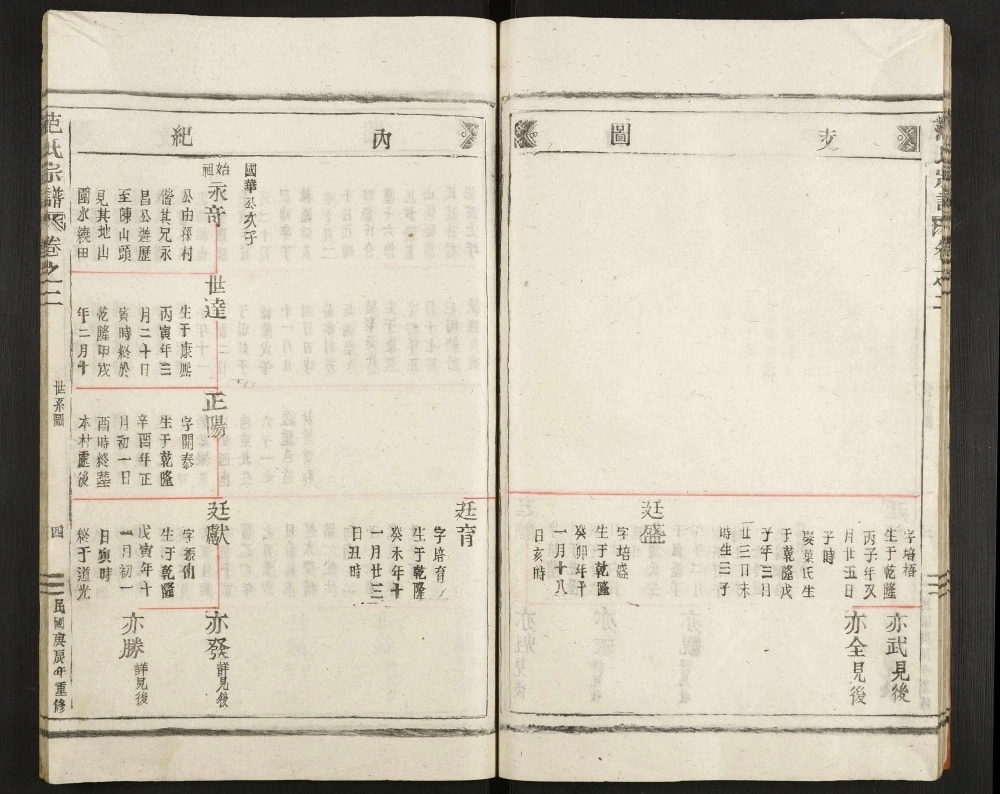 支
圖
字培梧
生于乾隆
丙子年又
月廿五日
子時
娶葉氏生
于乾隆戊
子年三月
廿三日未
時生三子
亦武見後
亦全見後
廷盛
字培盛
生于乾隆
癸卯年十
一月十八
日亥時
內
紀
廷育
字培育
生于乾隆
癸未年十
一月廿三
日丑時
國華公次子
始祖
永奇
公由祿村
偕其兄永
昌公遊歷
至陳山頭
見其地山
圍水繞田
世達
生于康熙
丙寅年三
月二十日
寅時終於
乾隆甲戌
年二月十
正陽
字開泰
生于乾隆
辛酉年正
月初一日
酉時終墓
本村處後
廷獻
生于乾隆
戊寅年十
一月初一
日寅時
終于道光
亦發詳見後
亦勝詳見後
范氏宗譜
卷之二
世系圖
四
民國庚辰年重修